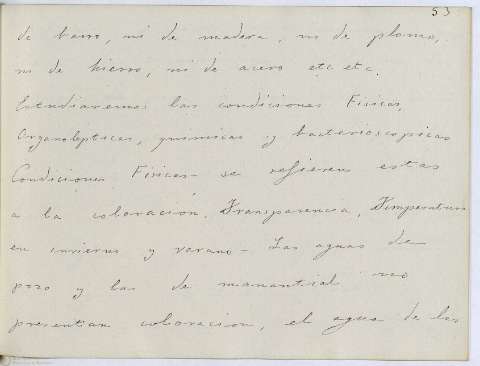 53
de barro, ni de madera, ni de plomo,
ni de hierro, ni de acero etc etc.
Estudiaremos las condiciones Fisicas,
Organolepticas, quimicas y bacterioscopicas
Condiciones Fisicas - se refieren estas
a la coloracion, Transparencia, Temperatura
en invierno y verano - Las aguas de
pozo y las de manantial no
presentan coloracion, el agua de los